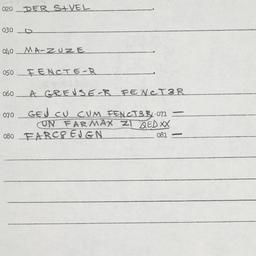 020 DER S+VEL
030 O
040 MA-ZUZE
050 FENCTE-R
060 A GREUSE-R FENCTBR
070 GEJ CU CUM FENCTBR 071
UN FARMAX ZI QED XX
080 FARCPEJGN 081